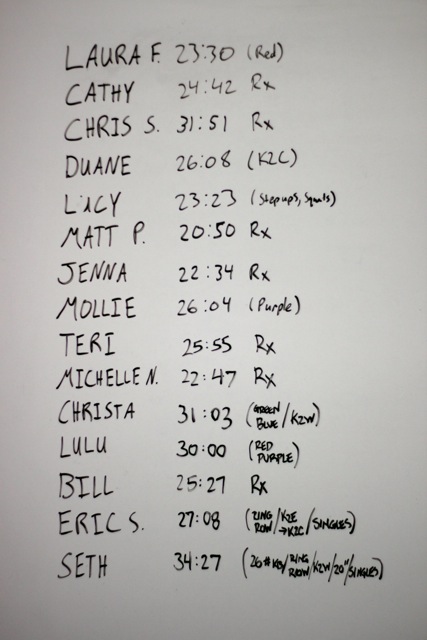 LAURA F. 23:30 (Red)
CATHY 24:42 Rx
CHRIS S. 31:51 Rx
DUANE 26:08 (K2C)
LUCY 23:23 (Stepups, Squats)
MATT P. 20:50 Rx
JENNA 22:34 Rx
MOLLIE 26:04 (Purple)
TERI 25:55 Rx
MICHELLE N. 22:47 Rx
CHRISTA 31:03 (GREEN BLUE/K2W)
LULU 30:00 (RED PURPLE)
BILL 25:27 Rx
ERIC S. 27:08 (RING ROW/K2E →K2C/SINGLES)
SETH 34:27 (26#KB/RING ROW/K2W/20"/SINGLES)